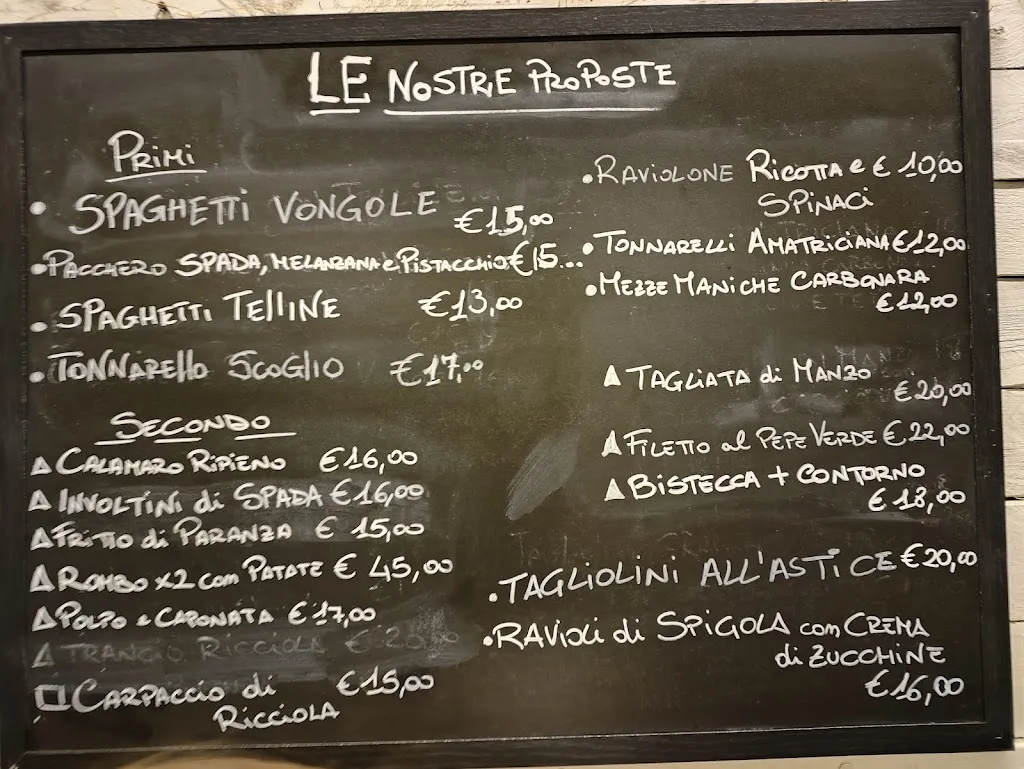 LE NOSTRE PROPOSTE
PRIMI
• SPAGHETTI VONGOLE €15,00
• PACCHERO SPADA, MELANZANA e PISTACCHIO €15...
• SPAGHETTI TELLINE €13,00
• TONNARELLO SCOGLIO €17,00
SECONDO
△ CALAMARO RIPIENO €16,00
△ INVOLTINI di SPADA €16,00
△ FRITTO di PARANZA € 15,00
△ ROMBO x2 con PATATE € 45,00
△ POLPO e CAPONATA €17,00
△ TRANCIO RICCIOLA €20,00
□ CARPACCIO di €15,00
RICCIOLA
• RAVIOLONE RICOTTA e € 10,00
SPINACI
• TONNARELLI AMATRICIANA €12,00
• MEZZE MANICHE CARBONARA
€12,00
▲ TAGLIATA di MANZO
€20,00
▲ FILETTO al PEPE VERDE €22,00
▲ BISTECCA + CONTORNO
€ 18,00
• TAGLIOLINI ALL'ASTICE €20,00
• RAVIOLI di SPIGOLA con CREMA
di ZUCCHINE
€16,00